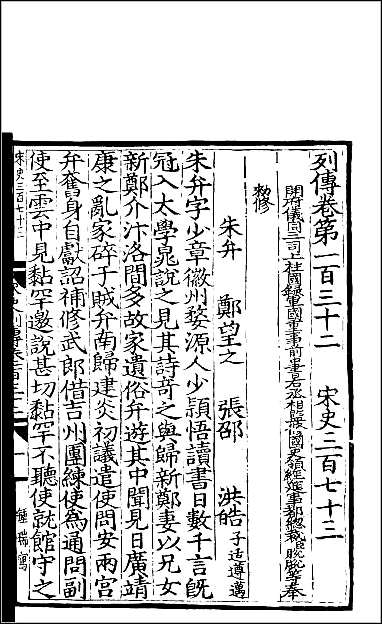 列傳卷第一百三十二 宋史三百七十三
開府儀同三司上柱國錄軍國重事前中書右丞相監修國史領經筵事都總裁臣脫脫等奉
勑修
朱弁 鄭望之 張邵 洪皓子适遵邁
朱弁字少章徽州婺源人少穎悟讀書日數千言既
冠入太學晁說之見其詩奇之與歸新鄭妻以兄女
新鄭介汴洛間多故家遺俗弁遊其中聞見日廣靖
康之亂家碎于賊弁南歸建炎初議遣使問安兩宮
弁奮身自獻詔補修武郎借吉州團練使為通問副
使至雲中見黏罕邀說甚切黏罕不聽使就館守之
宋史三百七十三
鍾瑞寫